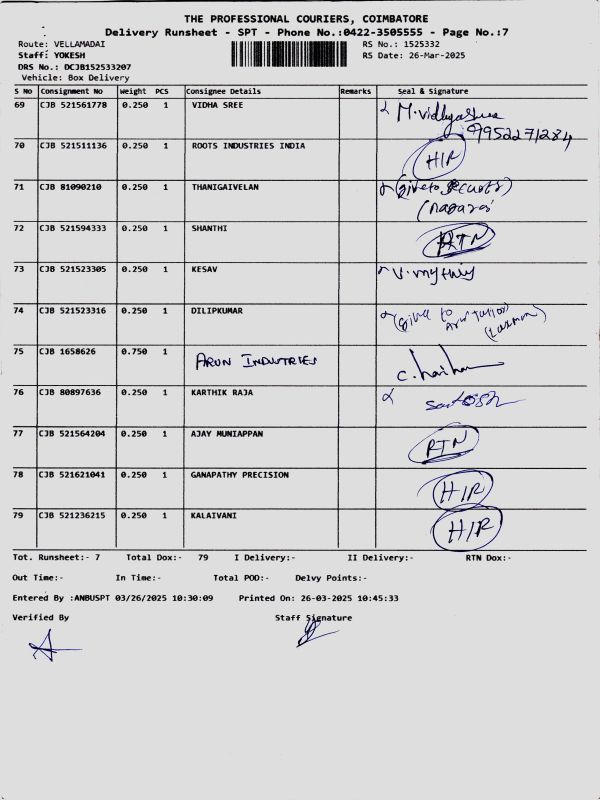 THE PROFESSIONAL COURIERS, COIMBATORE
Delivery Runsheet - SPT - Phone No.:0422-3505555 - Page No.:7
Route: VELLAMADAI RS No.: 1525332
Staff: YOKESH RS Date: 26-Mar-2025
DRS No.: DCJB152533207
Vehicle: Box Delivery
S No Consignment No Weight PCS Consignee Details Remarks Seal & Signature
69 CJB 521561778 0.250 1 VIDHA SREE M.vidhyasree
9952271284
70 CJB 521511136 0.250 1 ROOTS INDUSTRIES INDIA H/R
71 CJB 81090210 0.250 1 THANIGAIVELAN (give to
72 CJB 521594333 0.250 1 SHANTHI RTN
73 CJB 521523305 0.250 1 KESAV
74 CJB 521523316 0.250 1 DILIPKUMAR (give to
75 CJB 1658626 0.750 1 ARUN INDUSTRIES
76 CJB 80897636 0.250 1 KARTHIK RAJA Santosh
77 CJB 521564204 0.250 1 AJAY MUNIAPPAN RTN
78 CJB 521621041 0.250 1 GANAPATHY PRECISION H/R
79 CJB 521236215 0.250 1 KALAIVANI H/R
Tot. Runsheet:- 7 Total Dox:- 79 I Delivery:- II Delivery:- RTN Dox:-
Out Time:- In Time:- Total POD:- Delvy Points:-
Entered By :ANBUSPT 03/26/2025 10:30:09 Printed On: 26-03-2025 10:45:33
Verified By Staff Signature